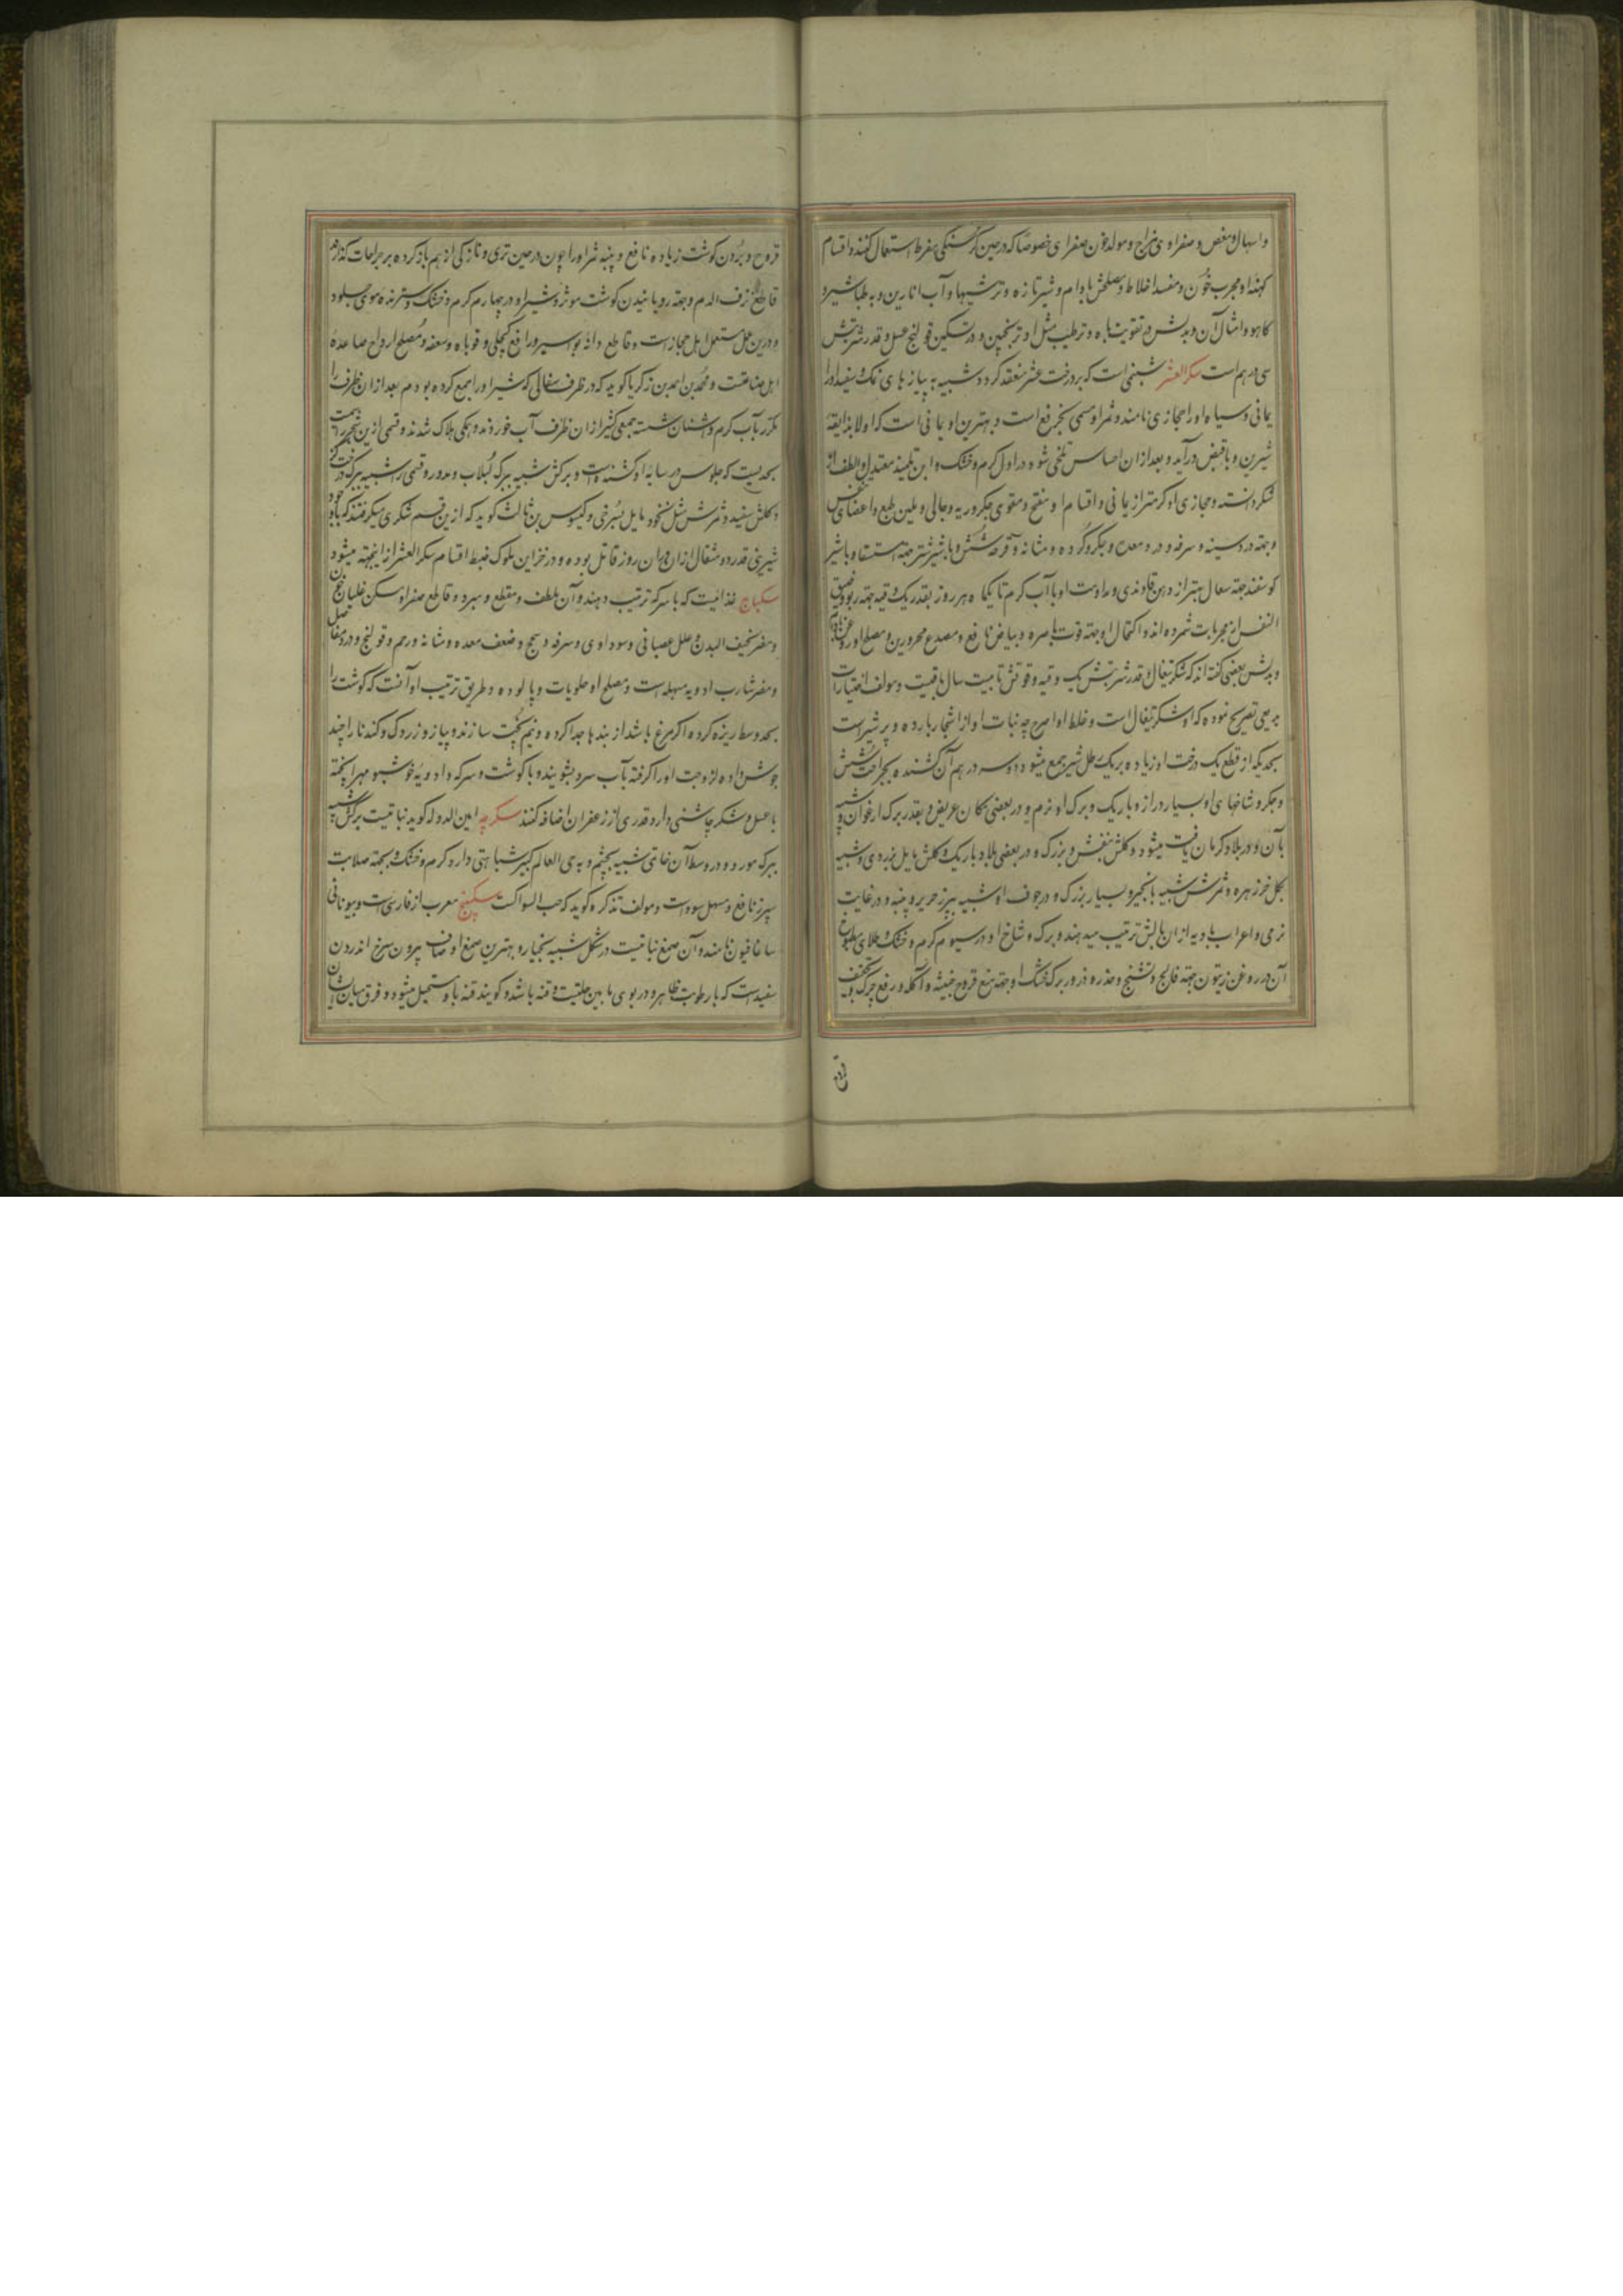 واسهال و مغص و صفراوی مزاج و مولد خون صفراوی خصوصا که در حین گرسنگی مفرط استعمال کنند و اقسام
کهنه او مجرب خون و مفسد اخلاط و مصلحش بادام و شیر تازه و ترشیها و آب انارین و به طباشیر و
کاهو و امثال آن و بدلش در تقویت باه و ترطیب مثل او ترنجبین و در تسکین قولنج عسل و قدر شربتش
سی درهم است سکر العشر شبنمی است که بر درخت عشر منعقد کردد شبیه به پیازهای نمک و سفید او را
یمانی و سیاه او را حجازی نامند و ثمر او مسمی بخرفع است و بهترین او یمانی است که اولا بذایقه
شیرین و با قبض درآید و بعد از ان احساس تلخی شود در اول کرم و خشک و ابن تلمیذ معتدل و الطف از
شکر دانسته و حجازی او کرمتر از یمانی و اقسام او مفتح و مقوی جکر و ریه و جالی و ملین طبع و اعضای
و جهة درد سینه و سرفه و درد معده و جکر و کرده و مثانه و قرحه شش و با شیر شتر جهة استسقا و با شیر
کوسفند جهة سعال بهتر از دهن و مداومت او با آب کرم تا یکماه هر روز بقدر یک وقیه جهة ربو و ضیق
النفس از مجربات شمرده اند و اکتحال او جهة قوت باصره و بیاض نافع و مصدع محرورین و مصلح او روغن بادام
و بدلش بعضی گفته اند که شکر تیغال و قدر شربتش یک وقیه و قوتش تا بیست سال باقیست و مولف اختیارات
بدیعی تصریح نموده که او شکر تیغال است و غلط او اصرح چه نبات او از اشجار بارده و پر شیر است
بحدیکه از قطع یک درخت او زیاده بر یک رطل شیر جمع میشود و دو سه درهم آن کشنده بجراحت شش
و جکر و شاخهای او بسیار دراز و باریک و برک او نرم و در بعضی مکان عریض و بقدر برک ارغوان و شبیه
بآن و در بلاد کرمان یافت میشود و کلش بنفش و بزرک و در بعضی بلاد باریک و کلش مایل بزردی و شبیه
بکل خرزهره و ثمرش شبیه بانجیر و بسیار بزرک و در جوف او شبیه ببرز حریر و پنبه و در غایت
نرمی و اعراب بادیه از ان بالش ترتیب میدهند و برک و شاخ او در سیوم کرم و خشک و طلای مطبوخ
آن در روغن زیتون جهة فالج و تشنج و خدر و ذرور برک خشک او جهة منع قروح خبیثه و آکله و رفع چرک و تجفیف
قروح
قروح و بردن کوشت زیاده نافع و پنبه ثمر او را چون در حین تری و تازکی از هم باز کرده بر جراحات کذارند
قاطع نزف الدم و جهة رویانیدن کوشت موثر و شیر او در چهارم کرم و خشک و سترنده موی جلود
و درین عمل مستعمل اهل حجاز است و قاطع دانه بواسیر و رافع کچلی و قوباء و سعفه و مصلح ارواح صاعده
اهل صناعتست و محمد بن احمد بن زکریا کوید که در ظرف سفالی که شیر او را جمع کرده بودم بعد از ان ظرف را
مکرر بآب کرم و اشنان شسته جمعی کثیر از ان ظرف آب خوردند و همکی هلاک شدند و قسمی ازین شجر را
بحدیست که جلوس در سایه او کشنده است و برکش شبیه ببرک لبلاب و مدور و قسمی را شبیه ببرک درخت
و کلش سفید و ثمرش مثل نخود مایل بسرخی و کیسوس بن ثالث کوید که ازین قسم شکری میکرفتند که با وجود
شیرینی قدر دو مثقال از ان در ان روز قاتل بوده و در خزاین ملوک ضبط اقسام سکر العشر از اینجهة میشود
سکباج غذائیست که با سرکه ترتیب دهند و آن ملطف و مقطع و مبرد و قاطع صفرا و مسکن غلیان خون
و مضر نحیف البدن و علل عصبانی و سوداوی و سرفه و سحج و ضعف معده و مثانه و رحم و قولنج و درد مفاصل
و مضر شارب ادویه مسهله است و مصلح او حلویات و پالوده و طریق ترتیب او آنست که کوشت را
بحد وسط ریزه کرده اکر مرغ باشد از بندها جدا کرده و نیم پخت سازند و پیاز و زردک و کندنا را چند
جوش داده لزوجت او را کرفته بآب سرد بشویند و با کوشت و سرکه و ادویه خوشبو مهرا پخته
با عسل و شکر چاشنی داد و قدری از زعفران اضافه کنند سکر چه امین الدوله کوید نباتیست برکش شبیه
ببرک مورد و در وسط آن خاتمی شبیه بچشم و به حی العالم کبیر شباهتی دارد کرم و خشک و جهة صلابت
سپرز نافع و مسهل سودا است و مولف تذکره کوید که حب السواکست سکبینج معرب از فارسی است و بیونانی
ساغافیون نامند و آن صمغ نباتیست در شکل شبیه بخیار و بهترین صمغ او صاف بیرون سرخ اندرون
سفید است که با رطوبت ظاهر و در بوی ما بین حلتیت و قنه باشد و کویند قنه باو مستحیل میشود و فرق میان ایشان